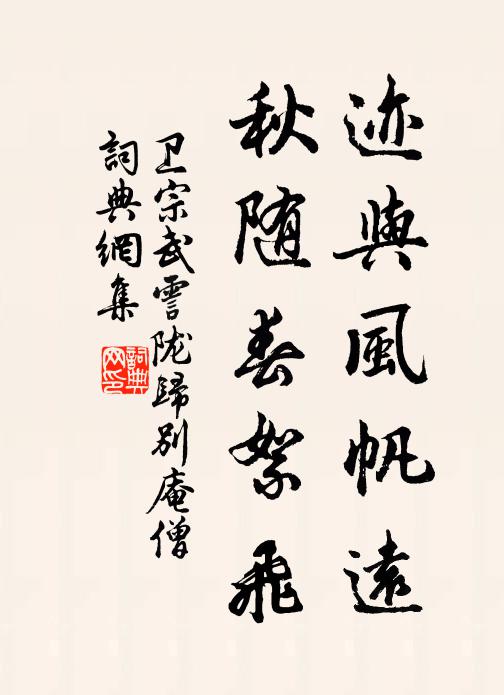 迹與風帆遠
秋随春絮飛
卫宗武霅陇歸别庵僧
詞典網集
詞典网印